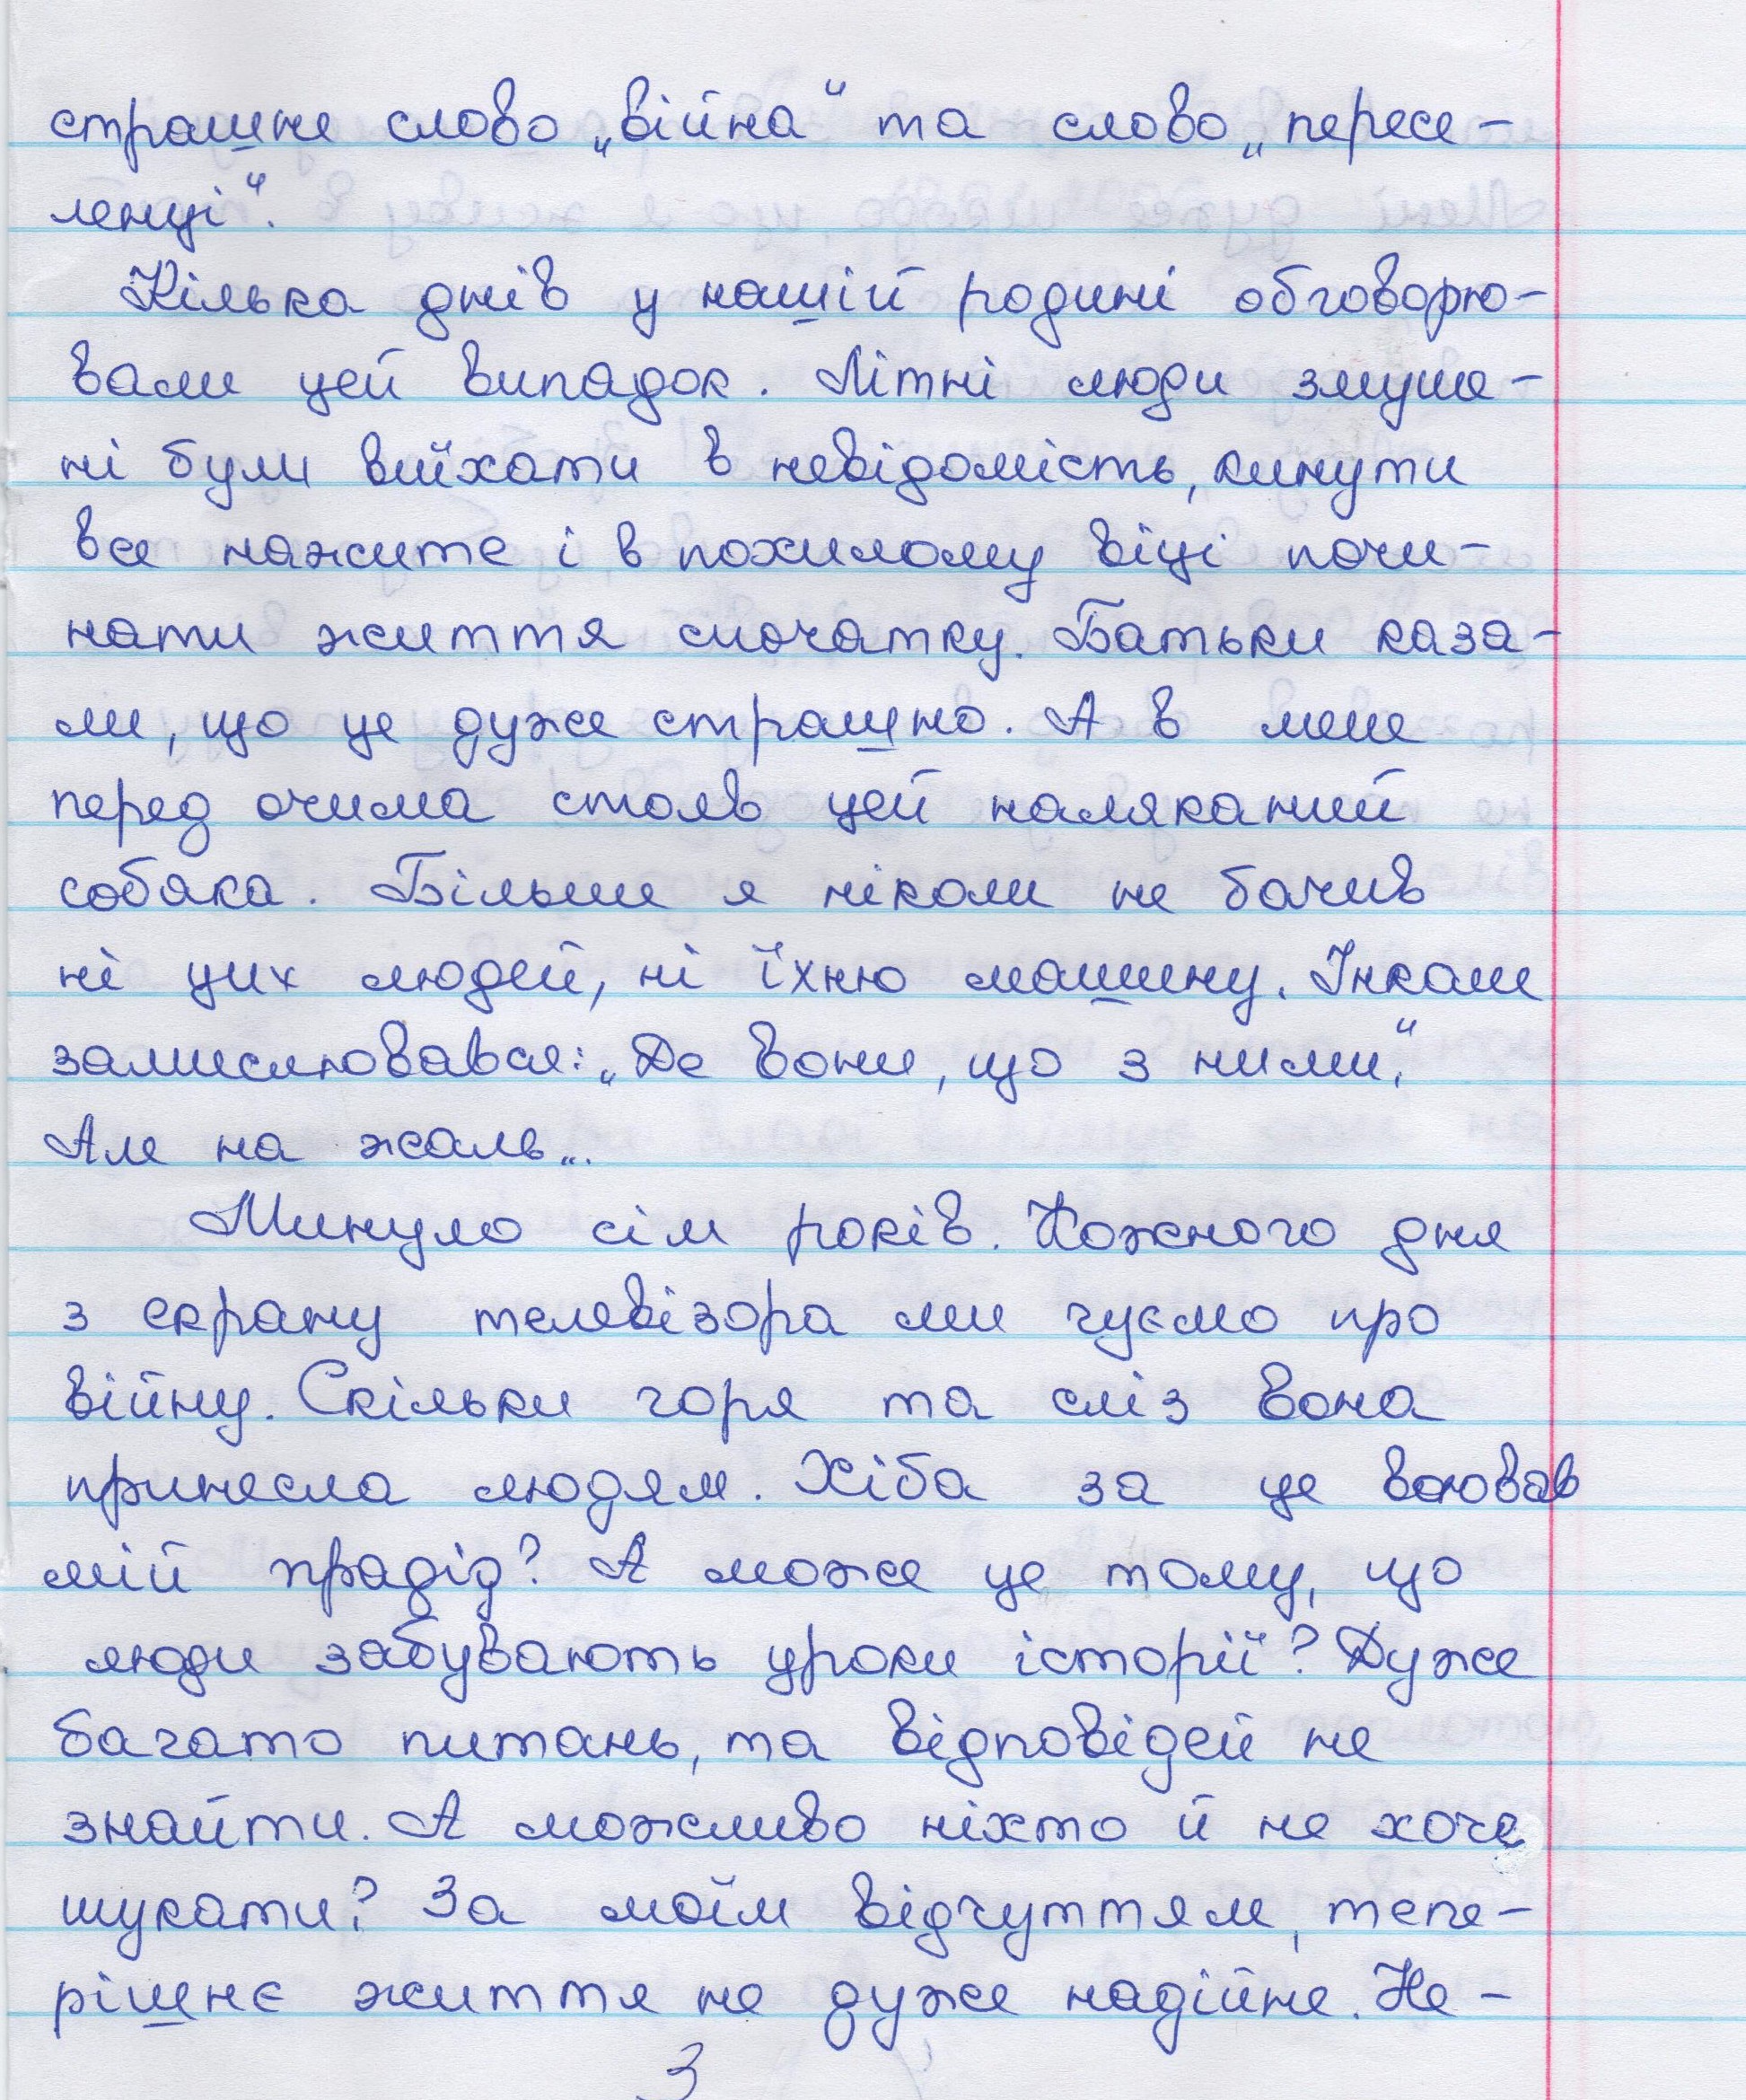 страшне слово „війна“ та слово „пересе-
ленці“.
Кілька днів у нашій родині обговорю-
вали цей випадок. Літні люди змуше-
ні були виїхати в невідомість, кинути
все нажите і в похилому віці почи-
нати життя спочатку. Батьки каза-
ли, що це дуже страшно. А в мене
перед очима стояв цей наляканий
собака. Більше я ніколи не бачив
ні цих людей, ні їхню машину. Інколи
замислювався: „Де вони, що з ними“.
Але на жаль...
Минуло сім років. Кожного дня
з екрану телевізора ми чуємо про
війну. Скільки горя та сліз вона
принесла людям. Хіба за це воював
мій прадід? А може це тому, що
люди забувають уроки історії? Дуже
багато питань, та відповідей не
знайти. А можливо ніхто й не хоче
шукати? За моїм відчуттям, тепе-
рішнє життя не дуже надійне. Не-
3